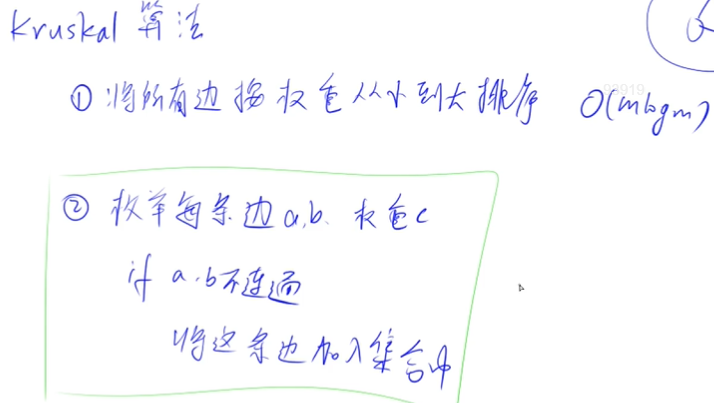 Kruskal 算法
① 将所有边按权重从小到大排序 O(mlogm)
② 枚举每条边a,b 权重c
if a,b不连通
将这条边加入集合中